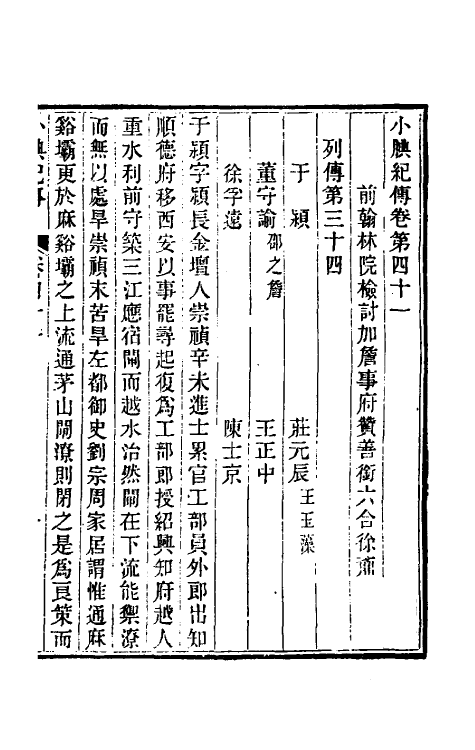 小腆紀傳卷第四十一
前翰林院檢討加詹事府贊善銜六合徐鼒
列傳第三十四
于 潁 莊元辰 王玉藻
董守諭 邵之詹 王正中
徐孚遠 陳士京
于潁字潁長金壇人崇禎辛未進士累官工部員外郎出知
順德府移西安以事罷尋起復爲工部郎授紹興知府越人
重水利前守築三江應宿閘而越水治然閘在下流能禦潦
而無以處旱崇禎末苦旱左都御史劉宗周家居謂惟通麻
谿壩更於麻谿壩之上流通茅山閘潦則閉之是爲良策而